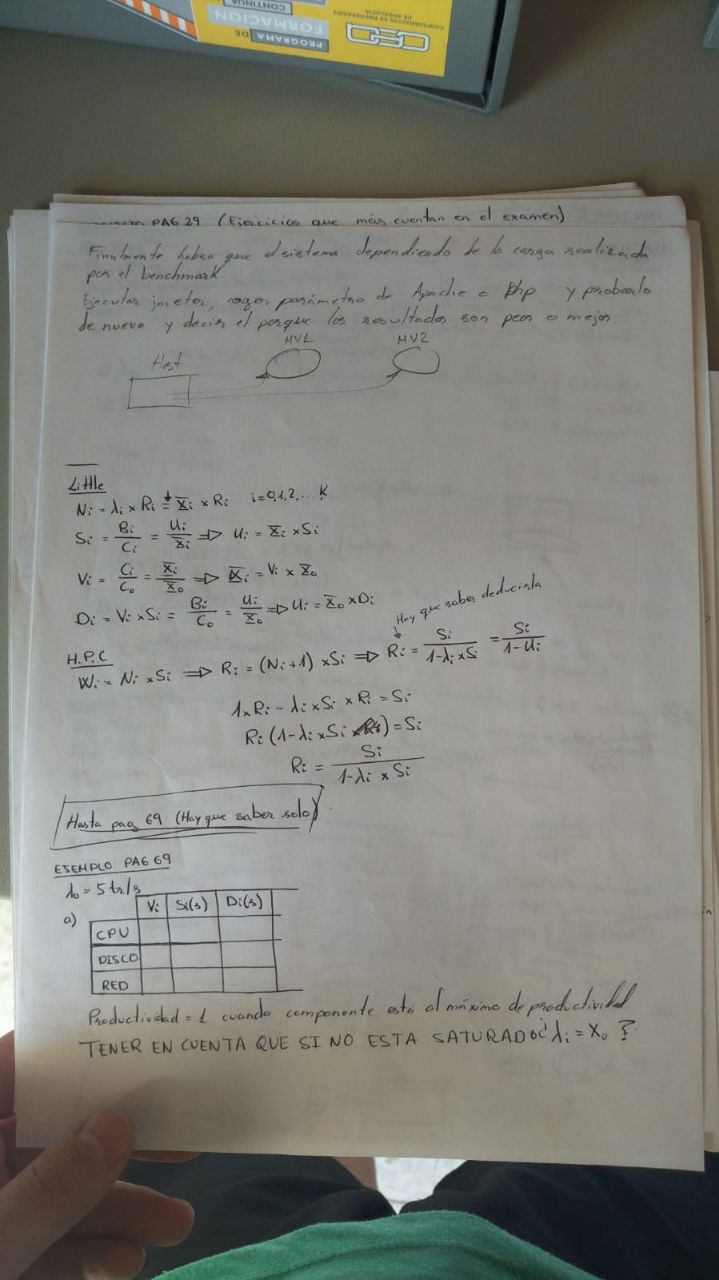 CONFEDERACION DE EMPRESARIOS
DE ANDALUCIA
CONTINUA
FORMACION
PROGRAMA DE
PAG 29 (Ejercicios que más cuentan en el examen)
Finalmente habrá que el sistema dependiendo de la carga realizada
por el benchmark
Ejecutar jmeter, coger parámetro de Apache o Php y probarlo
de nuevo y decir el porque los resultados son peor o mejor.
Host MV1 MV2
Little
Ni = λi × Ri = X̄i × Ri i=0,1,2,... K
Si = Bi/Ci = Ui/X̄i ⇒ Ui = X̄i × Si
Vi = Ci/C0 = X̄i/X̄0 ⇒ X̄i = Vi × X̄0
Di = Vi × Si = Bi/C0 = Ui/X̄0 ⇒ Ui = X̄0 × Di
Hay que saber deducirla
H.P.C
Wi = Ni × Si ⇒ Ri = (Ni+1) × Si ⇒ Ri = Si/(1-λi × Si) = Si/(1-Ui)
1 × Ri - λi × Si × Ri = Si
Ri (1-λi × Si) = Si
Ri = Si/(1-λi × Si)
Hasta pag 69 (Hay que saber solo)
EJEMPLO PAG 69
λ0 = 5 tr/s
a) Vi Si(s) Di(s)
CPU
DISCO
RED
Productividad = 1 cuando componente está al máximo de productividad
TENER EN CUENTA QUE SI NO ESTA SATURADO ¿λi = X0?